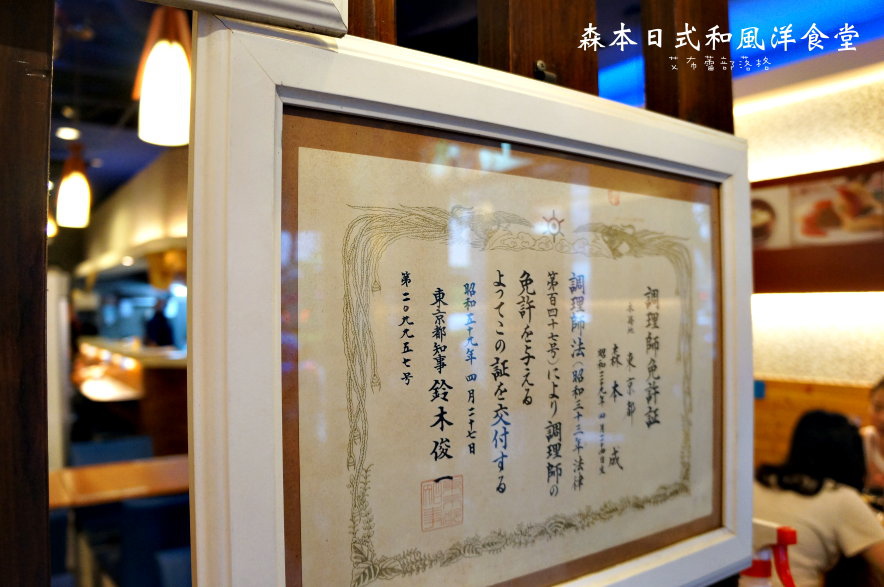 森本日式和風洋食堂
艾布蕾部落格
調理師免許証
本籍地 東京都
森本 成
調理師法(昭和三十三年法律
第百四十七号)により調理師の
免許を与える
よってこの証を交付する
昭和五十九年四月二十七日
東京都知事 鈴木俊一
第二〇九九五七号